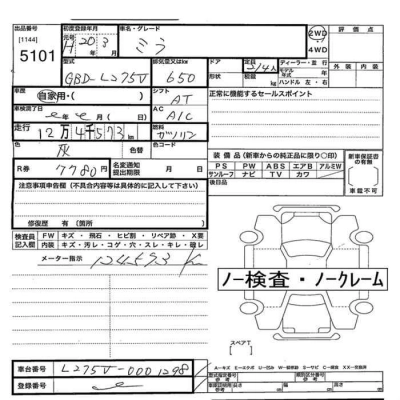 出品番号 初度登録年月 車名・グレード 評価点
[1144] 元号 2WD
5101 H 20 3 ミラ 4WD
型式 排気量又はkw ドア 定員 ディーラー・並行 外装 内装
年式 モデル 年
GBD-L275V 650 ハンドル 左・右
車歴 シフト 正常に機能するセールスポイント
自家用・( ) AT
車検満了日 AC
年 月 日 AIC
走行 燃料
12万4千573km ガソリン
色 色替 色コード
灰 装備品(新車からの純正品に限り○印) 新車保証書の有無
R券 7780円 名変通知提出期限 PS PW ABS エアB アルミW
サンルーフ ナビ TV カワ 有
注意事項申告欄(不具合内容等は具体的に記入して下さい) 後日品 車載不可
修復歴 有(箇所 )
検査員記入欄 FW キズ・飛石・ヒビ割・リペア跡・X要
内装 キズ・汚レ・コゲ・穴・スレ・キレ・破レ
メーター指示 124593 K
ノー検査・ノークレーム
スペアT
車台番号 L275V-0001298
登録番号